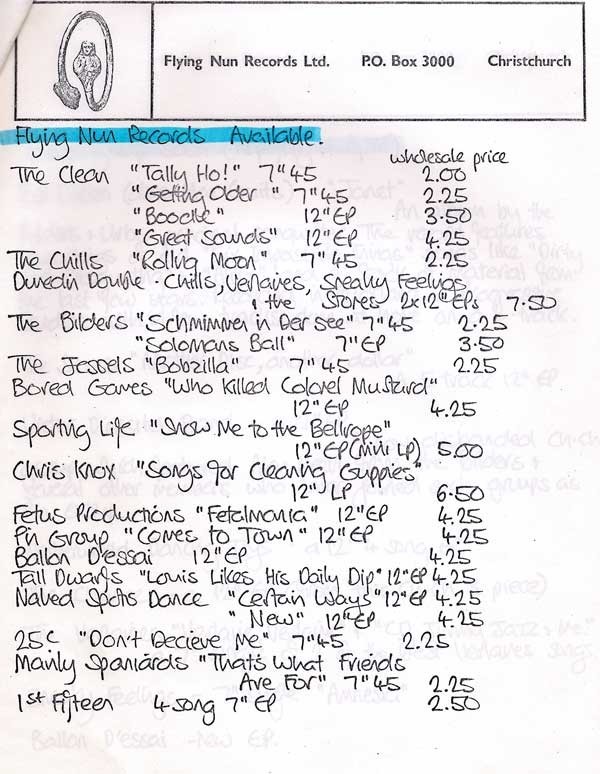 Flying Nun Records Ltd. P.O. Box 3000 Christchurch
Flying Nun Records Available.
wholesale price
The Clean "Tally Ho!" 7" 45 2.00
"Getting Older" 7" 45 2.25
"Boodle" 12" EP 3.50
"Great Sounds" 12" EP 4.25
The Chills "Rolling Moon" 7" 45 2.25
Dunedin Double - Chills, Verlaines, Sneaky Feelings
& the Stones 2x12" EPs 7.50
The Bilders "Schmimmer in Der See" 7" 45 2.25
"Solomans Ball" 7" EP 3.50
The Jessels "Bobzilla" 7" 45 2.25
Bored Games "Who Killed Colonel Mustard"
12" EP 4.25
Sporting Life "Show Me to the Bellrope"
12" EP (Mini LP) 5.00
Chris Knox "Songs for Cleaning Guppies"
12" LP 6.50
Fetus Productions "Fetalmania" 12" EP 4.25
Pin Group "Comes to Town" 12" EP 4.25
Ballon D'essai 12" EP 4.25
Tall Dwarfs "Louis Likes His Daily Dip" 12" EP 4.25
Naked Spots Dance "Certain Ways" 12" EP 4.25
" New" 12" EP 4.25
25¢ "Don't Decieve Me" 7" 45 2.25
Mainly Spaniards "That's What Friends
Are For" 7" 45 2.25
1st Fifteen 4 song 7" EP 2.50
Ballon D'essai - New EP.